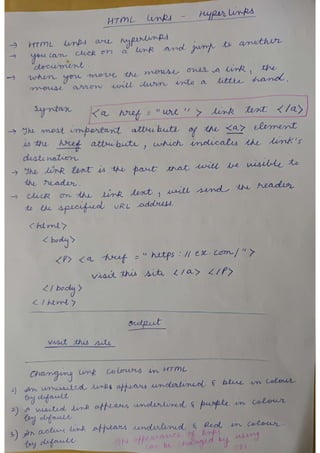 HTML links - Hyperlinks
→ HTML links are hyperlinks
→ you can click on a link and jump to another
document
→ when you move the mouse over a link, the
mouse arrow will turn into a little hand.
Syntax <a href = "url" > link text </a>
→ The most important attribute of the <a> element
is the href attribute, which indicates the link's
destination
→ The link text is the part that will be visible to
the reader.
→ click on the link text, will send the reader
to the specified URL address.
<html>
<body>
<P> <a href = "https://ex.com/">
visit this site </a> </P>
</body>
</html>
output
visit this site
Changing link colours in HTML
1) An unvisited link appears underlined & blue in colour
by default
2) A visited link appears underlined & purple in colour
by default
3) An active link appears underlined & Red in colour
by default
AN appearance of links
can be changed by using
CSS